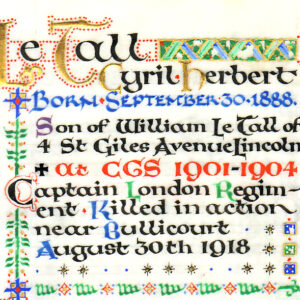 Le Tall
Cyril Herbert
Born September 30 1888.
Son of William Le Tall of
4 St Giles Avenue Lincoln
✠ at CGS 1901-1904
Captain London Regim-
ent Killed in action
near Bullicourt
August 30th 1918